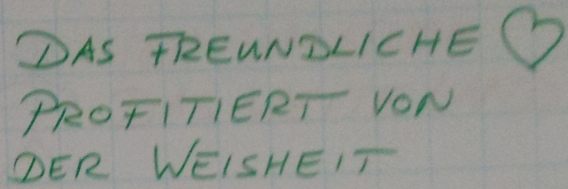 DAS FREUNDLICHE ♡
PROFITIERT VON
DER WEISHEIT